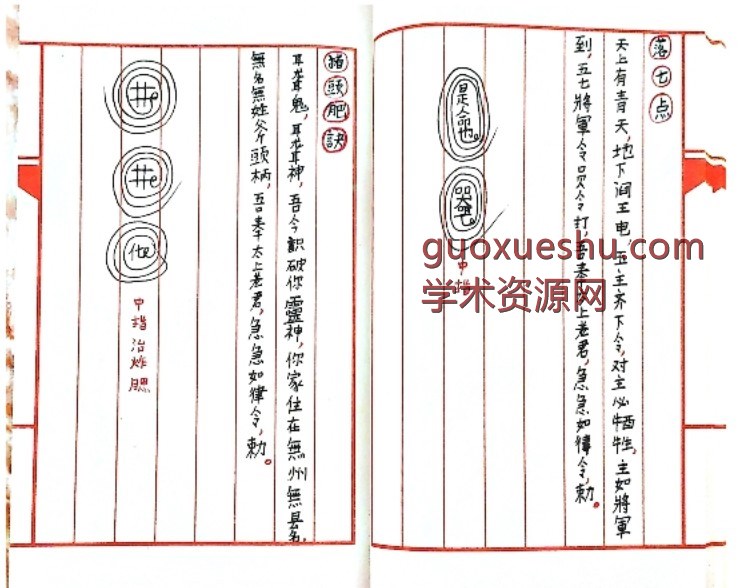 落七点
天上有青天，地下闾王电，五主齐下令，对主必牺牲，主如將軍
到，五七將軍令只令打，吾奉太上老君，急急如律令，勅。
是命也。
器也。
中指
猪頭肥訣
耳聋鬼，耳聋神，吾今識破你靈神，你家住在無州無县名，
無名無姓父斤頭柄，吾奉太上老君，急急如律令，勅。
井e
井e
化e
中指治炸腮
guoxueshu.com
学术资源网